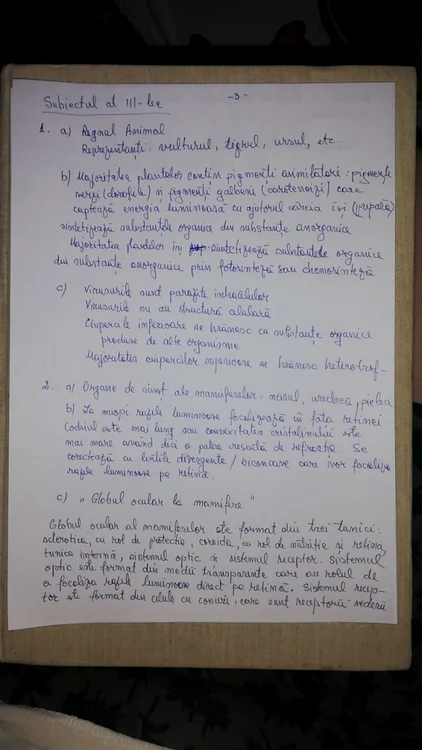 -3-
Subiectul al III-lea
1. a) Regnul Animal
Reprezentanți: vulturul, tigrul, ursul, etc
b) Majoritatea plantelor conțin pigmenți asimilatori: pigmenți
verzi (clorofile) și pigmenți galbeni (carotenoizi) care
captează energia luminoasă cu ajutorul căreia își (prepară)
sintetizează substanțele organice din substanțe anorganice
Majoritatea plantelor își sintetizează substanțele organice
din substanțe anorganice prin fotosinteză sau chemosinteză
c) Virusurile sunt parazite intracelular
Virusurile nu au structură celulară
Ciupercile inferioare se hrănesc cu substanțe organice
produse de alte organisme
Majoritatea ciupercilor superioare se hrănesc heterotrof-
2. a) Organe de simț ale mamiferelor: nasul, urechea, pielea
b) La miopi razele luminoase focalizează în fața retinei
Codrul este mai lung sau convexitatea cristalinului este
mai mare având deci o putere crescută de refracție. Se
corectează cu lentile divergente / biconcave care vor focaliza
razele luminoase pe retină.
c) „Globul ocular la mamifere"
Globul ocular al mamiferelor este format din trei tunici:
sclerotica, cu rol de protecție, coroida, cu rol de nutriție și retina,
tunica internă, sistemul optic și sistemul receptor. Sistemul
optic este format din medii transparente care au rolul de
a focaliza razele luminoase direct pe retină. Sistemul recep-
tor este format din celule cu conuri, care sunt receptorii vederii